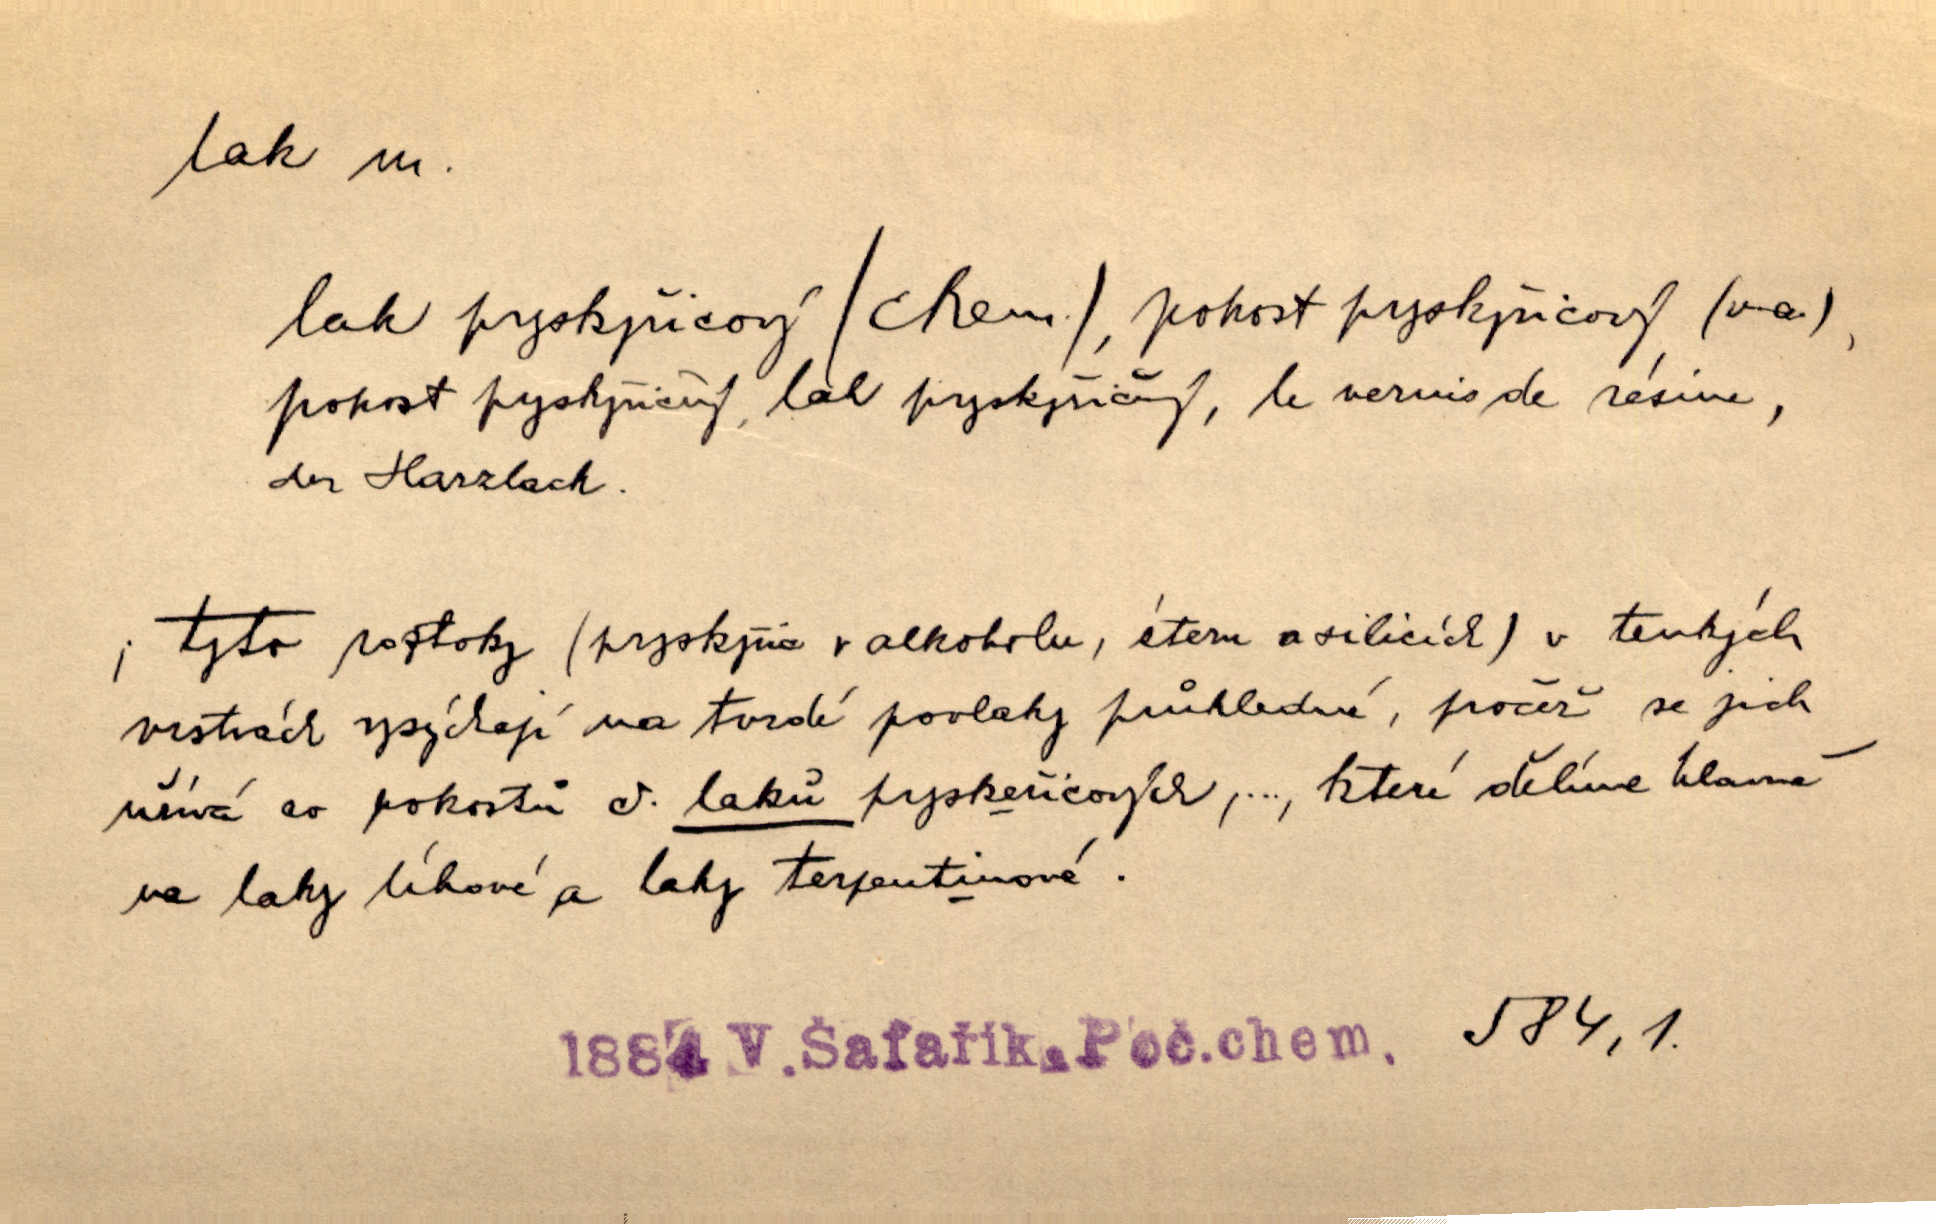 lak m.
lak pryskyřicový (chem.), pokost pryskyřicový (v.a.),
pokost pryskyřičný, lak pryskyřičný, le vernis de résine,
der Harzlack.
; Tyto roztoky (pryskyřic v alkoholu, éteru a silicích) v tenkých
vrstvách vysýchají na tvrdé povlaky průhledné, pročež se jich
užívá co pokostů č. laků pryskeřicových, ..., které dělíme hlavně
na laky líhové a laky terpentinové.
1884 V. Šafařík. Poč.chem. 584, 1.